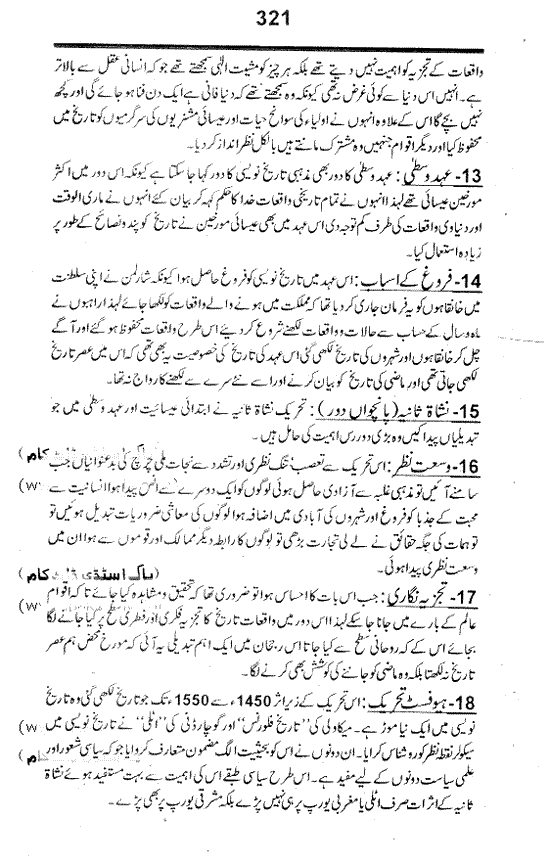 321
واقعات کے تجزیہ کو اہمیت نہیں دیتے تھے بلکہ ہر چیز کو مشیت الٰہی سمجھتے تھے جو کہ انسانی عقل سے بالاتر
ہے۔ انہیں اس دنیا سے کوئی غرض نہ تھی کیونکہ وہ سمجھتے تھے کہ دنیا فانی ہے ایک دن فنا ہو جائے گی اور کچھ
نہیں بچے گا اس کے علاوہ انہوں نے اولیاء کی سوانح حیات اور عیسائی مشنریوں کی سرگرمیوں کو تاریخ میں
محفوظ کیا اور دیگر اقوام جنہیں وہ مشرک مانتے ہیں بالکل نظر انداز کر دیا۔
13- عہد وسطیٰ : عہد وسطیٰ کا دور بھی مذہبی تاریخ نویسی کا دور کہا جا سکتا ہے کیونکہ اس دور میں اکثر
مورخین عیسائی تھے لہذا انہوں نے تمام تاریخی واقعات خدا کا حکم کہہ کر بیان کئے انہوں نے ماری الوقت
اور دنیاوی واقعات کی طرف کم توجہ دی اس عہد میں بھی عیسائی مورخین نے تاریخ کو پند و نصائح کے طور پر
زیادہ استعمال کیا۔
14- فروغ کے اسباب : اس عہد میں تاریخ نویسی کو فروغ حاصل ہوا کیونکہ شارلمن نے اپنی سلطنت
میں خانقاہوں کو یہ فرمان جاری کر دیا تھا کہ مملکت میں ہونے والے واقعات کو لکھا جائے لہذا راہبوں نے
ماہ و سال کے حساب سے حالات و واقعات لکھنے شروع کر دیئے اس طرح واقعات محفوظ ہو گئے اور آگے
چل کر خانقاہوں اور شہروں کی تاریخ لکھی گئی اس عہد کی تاریخ کی خصوصیت یہ بھی تھی کہ اس میں عصر تاریخ
لکھی جاتی تھی اور ماضی کی تاریخ کو بیان کرنے اور اسے نئے سرے سے لکھنے کا رواج نہ تھا۔
15- نشاۃ ثانیہ (پانچواں دور) : تحریک نشاۃ ثانیہ نے ابتدائی عیسائیت اور عہد وسطیٰ میں جو
تبدیلیاں پیدا کیں وہ بڑی دوررس اہمیت کی حامل ہیں۔
16- وسعت نظر : اس تحریک سے تعصب تنگ نظری اور تشدد سے نجات ملی چرچ کی بدعنوانیاں جب
سامنے آئیں تو مذہبی غلبہ سے آزادی حاصل ہوئی لوگوں کو ایک دوسرے سے انس پیدا ہوا انسانیت سے
محبت کے جذبا کو فروغ اور شہروں کی آبادی میں اضافہ ہوا لوگوں کی معاشی ضروریات تبدیل ہوئیں تو
توہمات کی جگہ حقائق نے لے لی تجارت بڑھی تو لوگوں کا رابطہ دیگر ممالک اور قوموں سے ہوا ان میں
وسعت نظری پیدا ہوئی۔
(پاک اسٹڈی ڈاٹ کام
17- تجزیہ نگاری : جب اس بات کا احساس ہوا تو ضروری تھا کہ تحقیق و مشاہدہ کیا جائے تا کہ اقوام
عالم کے بارے میں جانا جا سکے لہذا اس دور میں واقعات تاریخ کا تجزیہ فکری اور فطری سطح پر کیا جانے لگا
بجائے اس کے کہ روحانی سطح سے کیا جاتا اس رجحان میں ایک اہم تبدیلی یہ آئی کہ مورخ محض ہم عصر
تاریخ نہ لکھتا بلکہ وہ ماضی کو جاننے کی کوشش بھی کرنے لگا۔
18- ہیومنسٹ تحریک : اس تحریک کے زیر اثر 1450ء سے 1550ء تک جو تاریخ لکھی گئی وہ تاریخ
نویسی میں ایک نیا موڑ ہے۔ میکاولی کی "تاریخ فلورنس" اور گوچارڈنی کی "اٹلی" نے تاریخ نویسی میں
سیکولر نقطہ نظر کو روشناس کرایا۔ ان دونوں نے اس کو بحیثیت الگ مضمون متعارف کروایا جو کہ سیاسی شعور اور
علمی سیاست دونوں کے لیے مفید ہے۔ اس طرح سیاسی طبقے اس کی اہمیت سے بہت مستفید ہوئے نشاۃ
ثانیہ کے اثرات صرف اٹلی یا مغربی یورپ پر ہی نہیں پڑے بلکہ مشرقی یورپ پر بھی پڑے۔